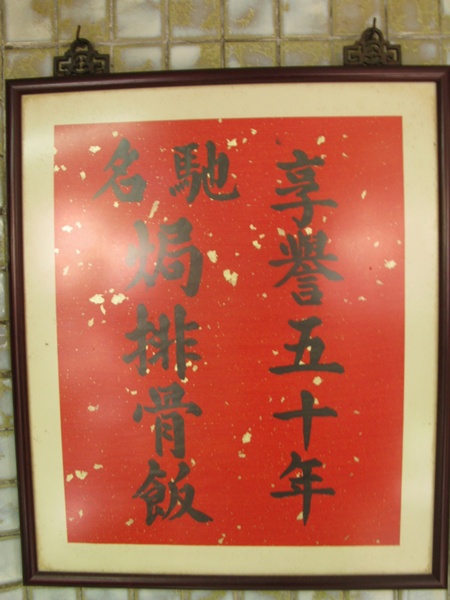 享譽五十年
馳名
焗排骨飯